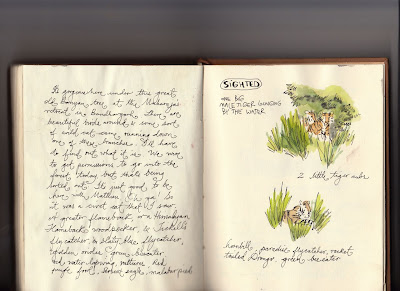 under this great
old banyan tree at the Maharaja's
retreat in Bandhavgarh. There are
beautiful birds around & some sort
of wild cat came running down
one of these branches. I'll have
to find out what it is. We were
to get permissions to go into the
forest today but that's being
sorted out. Its just good to be
here with
it was a owlet that I saw.
A greater flameback, or a Himalayan
flameback woodpecker, & Tickell's
flycatcher, a slaty blue flycatcher,
treepie, Green beeeater
red water lapwing
purple
SIGHTED
one BIG
MALE TIGER LOUNGING
BY THE WATER
2 little tiger cubs
hornbills, paradise flycatcher, racket
tailed Drongo, green bee eater